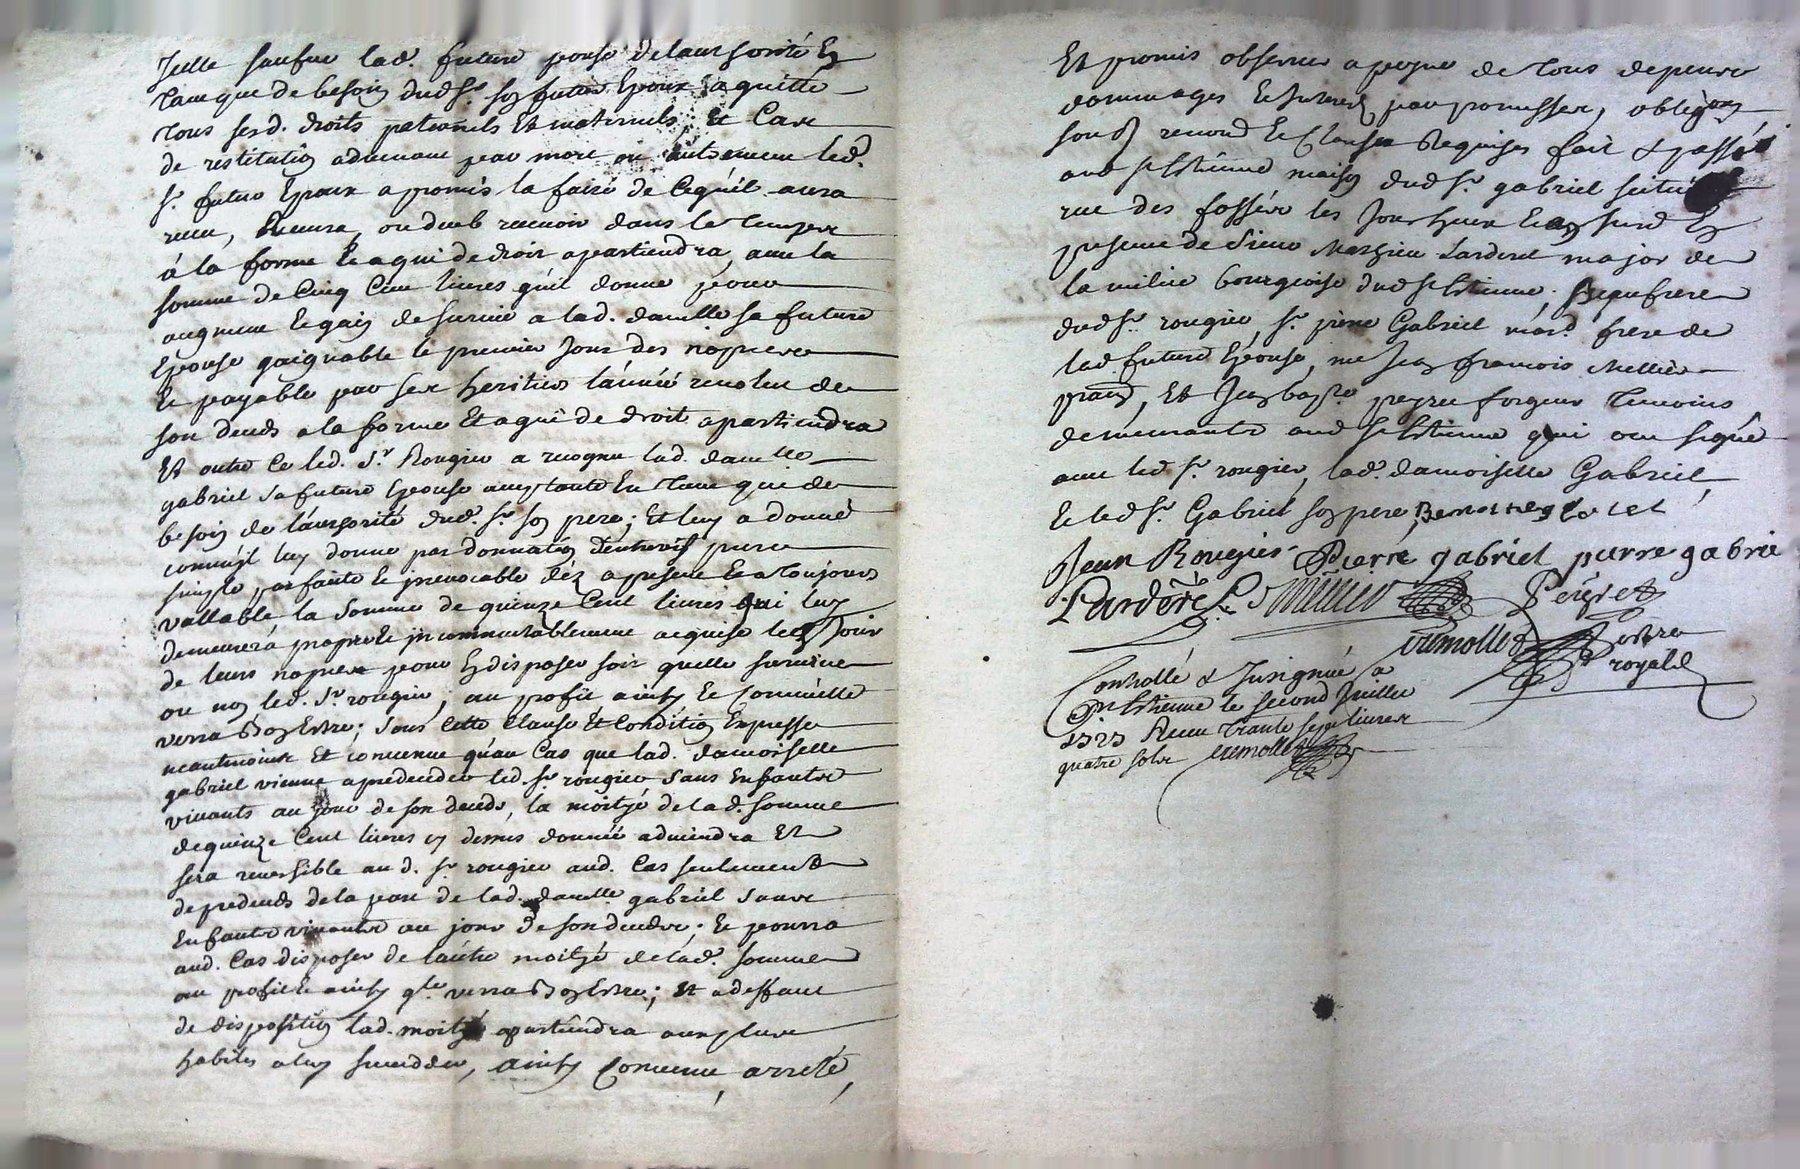 Icelle future lad. future epouse de lauthorité Et
tant que de besoin dud Sr. son futur Epoux a quitté
tous sesd. droits paternels Et maternels, Et Cas
de restitution advenant par mort ou autrement led.
Sr. futur Epoux a promis la faire de Cequil aura
receu, Recevra, ou deub recevoir dans le temps
á la forme Et a qui de droit apartiendra, avec la
somme de Cinq Cent livres qu'il donne pour
augment Et gain de survie a lad. damlle sa future
Epouse gaignable le premier Jour des nopces
Et payable par ses heritiers l'année revolue de
son deceds a la forme Et a qui de droit apartiendra
Et outre Ce led. Sr Rougier a recognu lad. damlle
gabriel sa future Epouse acceptante En tant que de
besoin de l'authorité dud. Sr. son pere; Et luy a donné
comm'il luy donne par donnation D'entrevif pure
simple parfaite Et irrevocable déz apresent Et a toujours
vallable la somme de quinze Cent livres qui luy
demeurera propre Et incommutablement acquise le Jour
de leurs nopces pour En disposer soit quelle survive
ou non led. Sr rougier, au profit ainsy Et Comm'elle
verra Bon Estre; sous cette Clause Et Condition Expresse
neantmoins Et convenue qu'au Cas que lad. damoiselle
gabriel vienne a predeceder led. Sr rougier sans Enfants
vivants au jour de son deceds, la moitié de lad. somme
de quinze Cent livres cy dessus donnée adviendra Et
sera reversible aud. Sr rougier aud. Cas seulement
de predeceds de la part de lad. damlle gabriel sans
Enfants vivants au jour de son deceds; Et pourra
aud. Cas disposer de l'autre moitié de lad. somme
au profit Et ainsy qlle verra Bon Estre; Et a deffaut
de disposition lad. moitié apartiendra aux plus
habiles a luy succeder, ainsy Convenu, arresté,
Et promis observer a peyne de tous depens
dommages Et Interest par promesses, obligaons
soub renond Et Clauses Requises fait & passé
aud St Estienne maison dud Sr. gabriel scituée
rue des fossés les Jour
presence de Sieur Mathieu Larderet major de
la milice bourgeoise dud St Estienne, Beaufrere
dud Sr. rougier, Sr. pierre Gabriel mard. frere de
lad. future Epouse, me Jean francois Mellier
pratn, Et Jean bapte peyret forgeur temoins
demeurants aud St Estienne qui ont signé
avec led Sr. rougier, lad. damoiselle Gabriel,
Et led Sr. Gabriel son pere
Jean Rougier Pierre gabriel pierre gabriel
Larderet Mellier Peyret
tremollet notre
royal
Controllé & Insignué a
St Estienne le second Juillet
1723 Receu trante sept livres
quatre sols tremollet